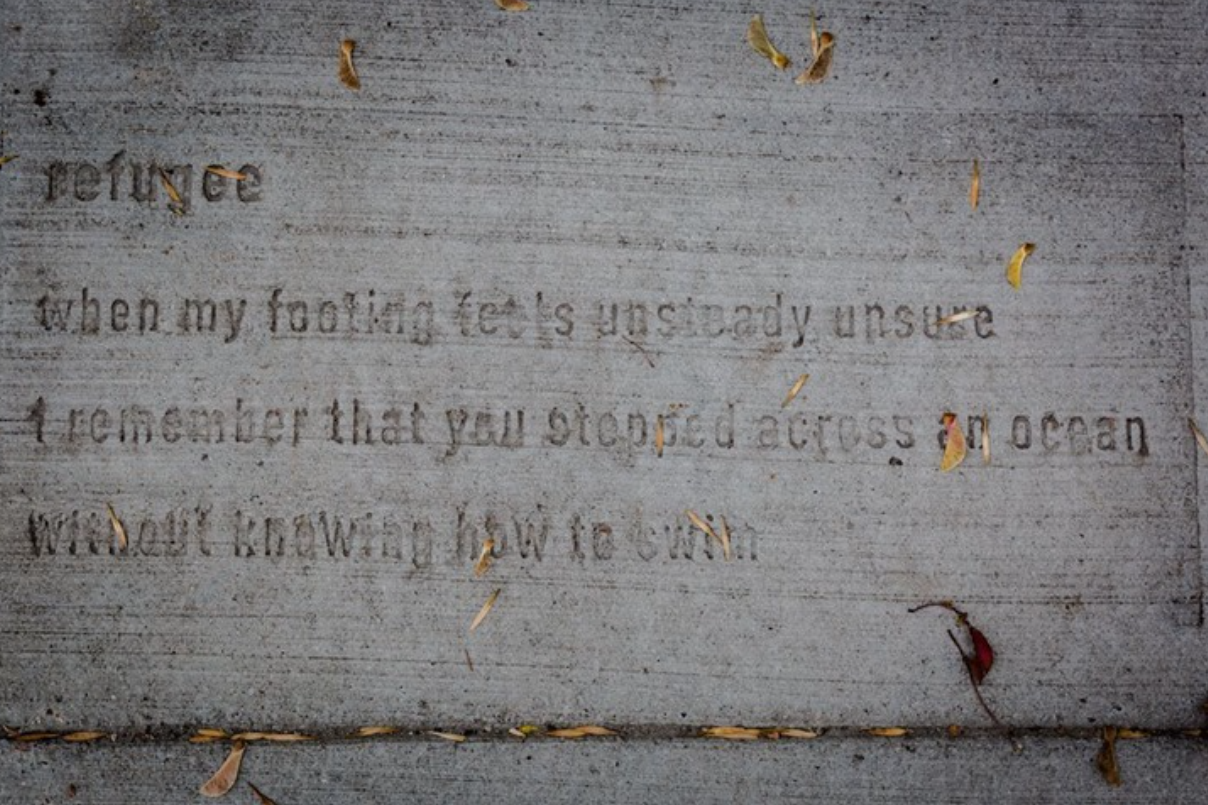 refugee
when my footing feels unsteady unsure
I remember that you stepped across an ocean
without knowing how to swim